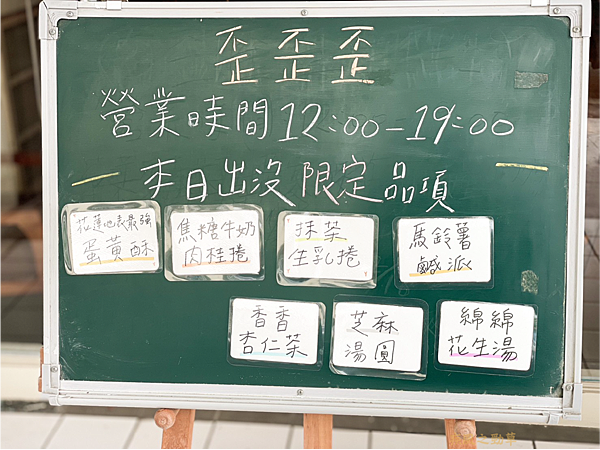 歪歪歪
營業時間12:00-19:00
本日出沒限定品項
花蓮地表最強
蛋黃酥
焦糖牛奶
肉桂捲
抹茶
生乳捲
馬鈴薯
鹹派
香香
杏仁茶
芝麻
湯圓
綿綿
花生湯